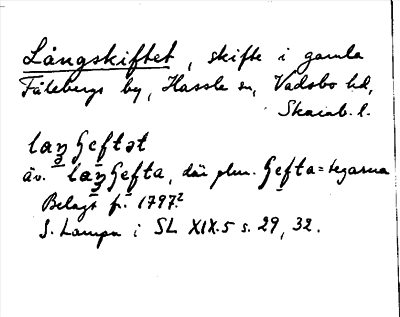 Långskiftet, skifte i gamla
Fålebergs by, Hassle sn, Vadsbo hd,
Skarab. l.
laŋʒɛftət
äv. laŋʒɛfta, där plur. ʒɛfta=tegarna
Belagt fr. 1797?
S. Lampa i SL XIX.5 s. 29, 32.